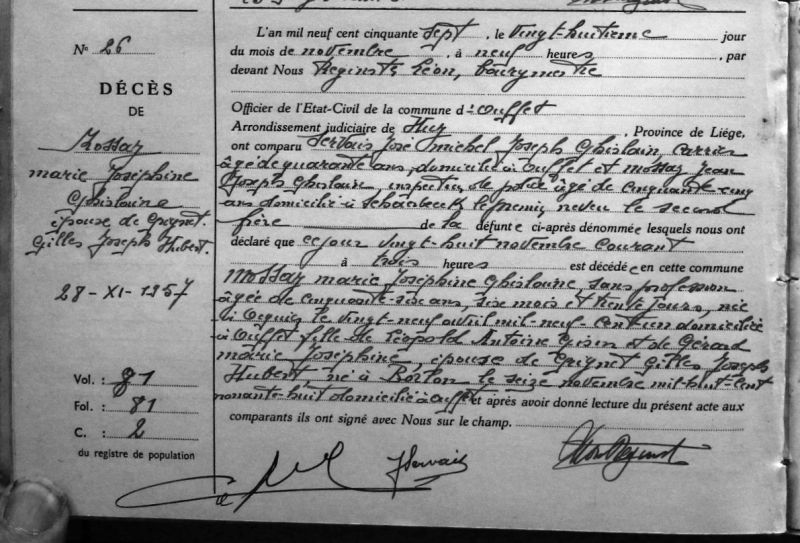 N° 26
DÉCÈS
DE
Mossay
marie Joséphine
Ghislaine
épouse de Grignet
Gilles Joseph Hubert.
28-XI-1957
Vol. : 91
Fol. : 81
C. : 2
du registre de population
L'an mil neuf cent cinquante sept, le vingt-huitième jour
du mois de novembre, à neuf heures, par
devant Nous Reginster Léon, bourgmestre
Officier de l'Etat-Civil de la commune d'Ouffet
Arrondissement judiciaire de Huy, Province de Liége,
ont comparu Servais José Michel Joseph Ghislain, carrier
âgé de quarante ans, domicilié à Ouffet et Mossay Jean
Joseph Ghislain, inspecteur de police âgé de cinquante cinq
ans domicilié à Schaerbeek le premier neveu le second
frère de la défunte ci-après dénommée lesquels nous ont
déclaré que ce jour vingt-huit novembre courant
à trois heures est décédée en cette commune
Mossay marie Joséphine Ghislaine, sans profession
âgée de cinquante-six ans, six mois et trente jours, née
à le vingt-neuf avril mil-neuf-cent un domiciliée
à Ouffet fille de Léopold Antoine et de Gérard
marie Joséphine, épouse de Grignet Gilles Joseph
Hubert né à Borlon le seize novembre mil huit cent
nonante-huit domicilié à Ouffet et après avoir donné lecture du présent acte aux
comparants ils ont signé avec Nous sur le champ.
JServais